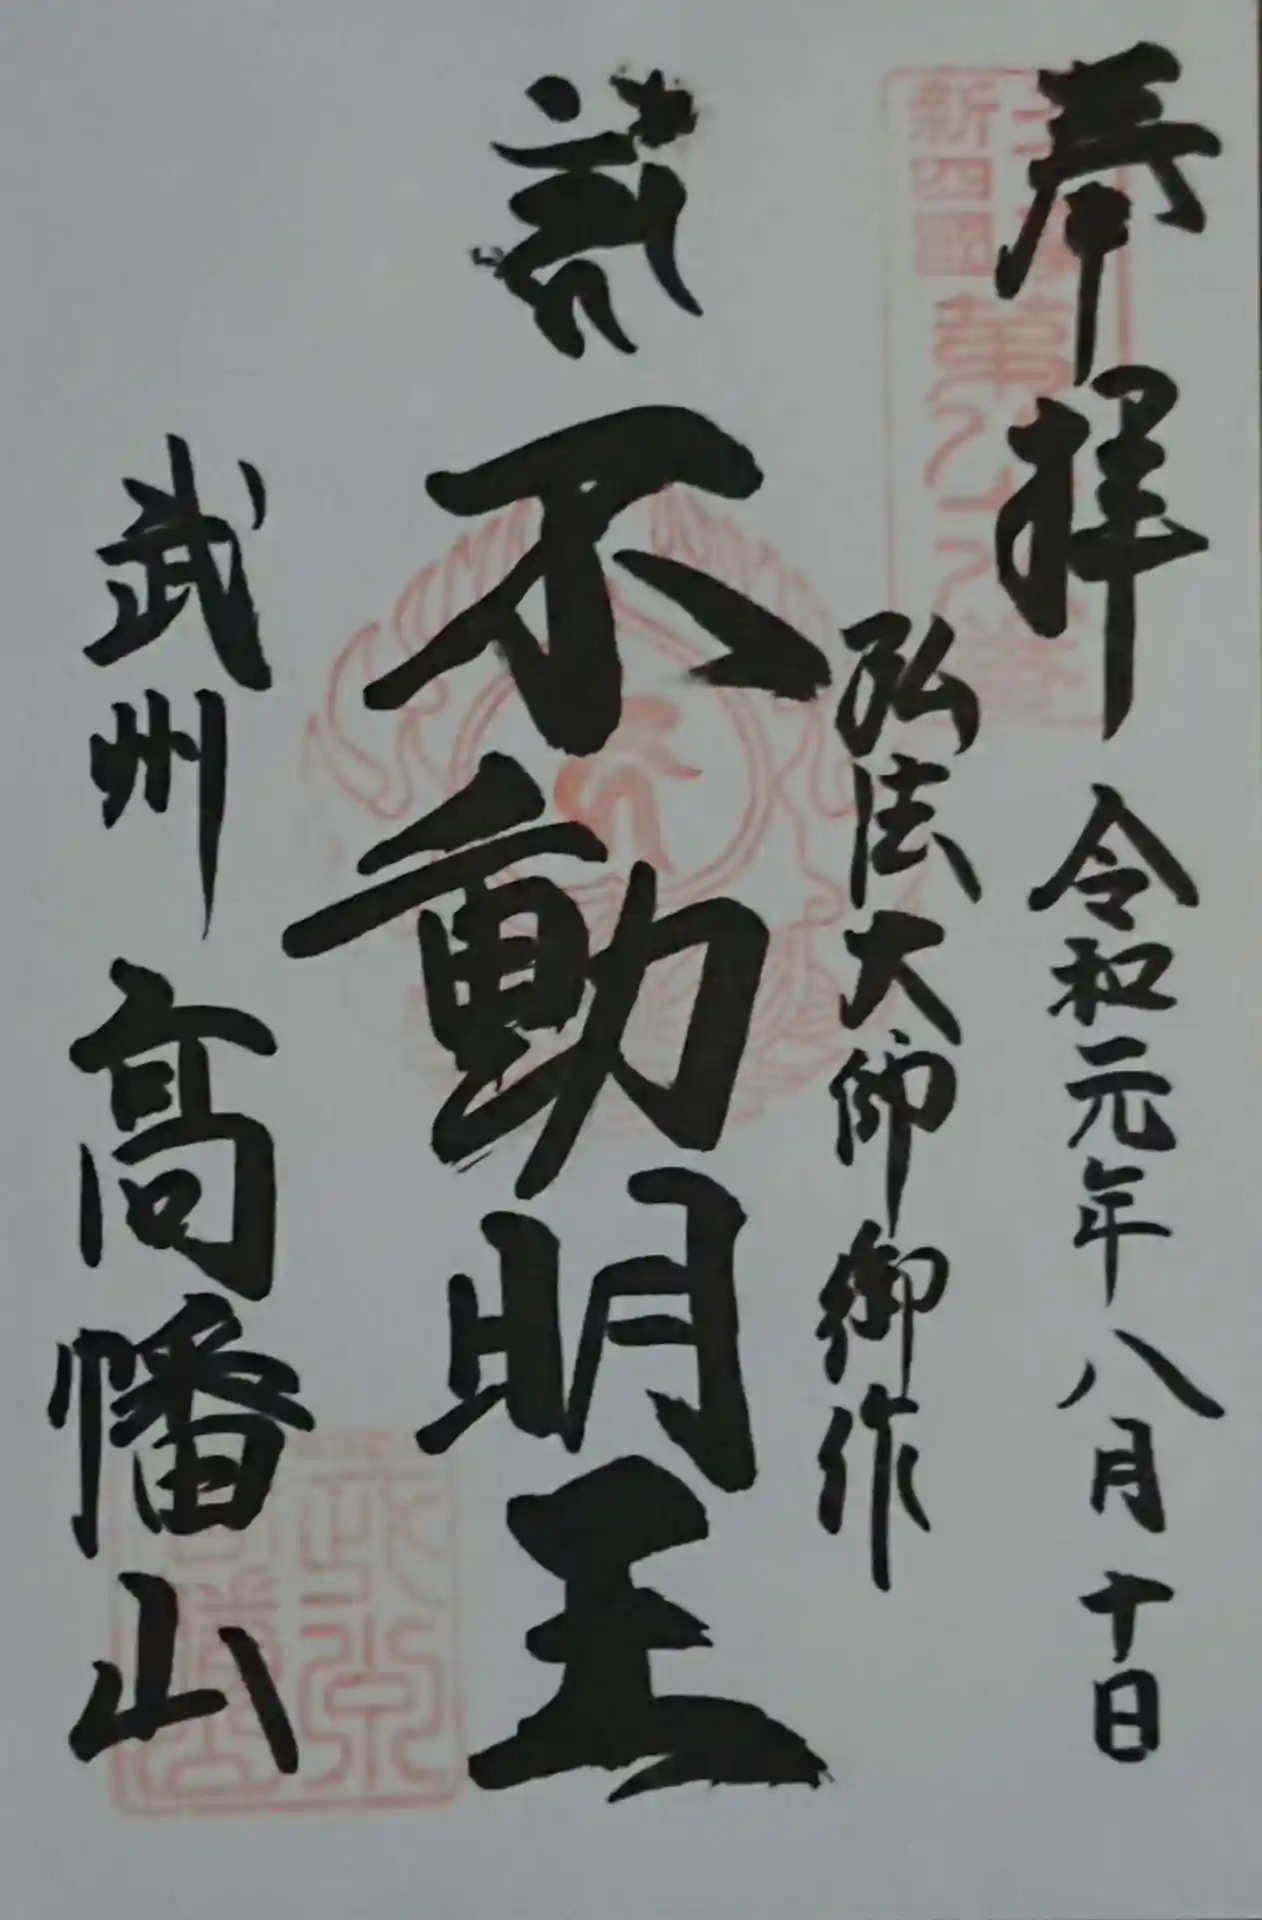 奉拝
令和元年八月十日
弘法大師御作
不動明王
武州 高幡山
新四國
第八十八番